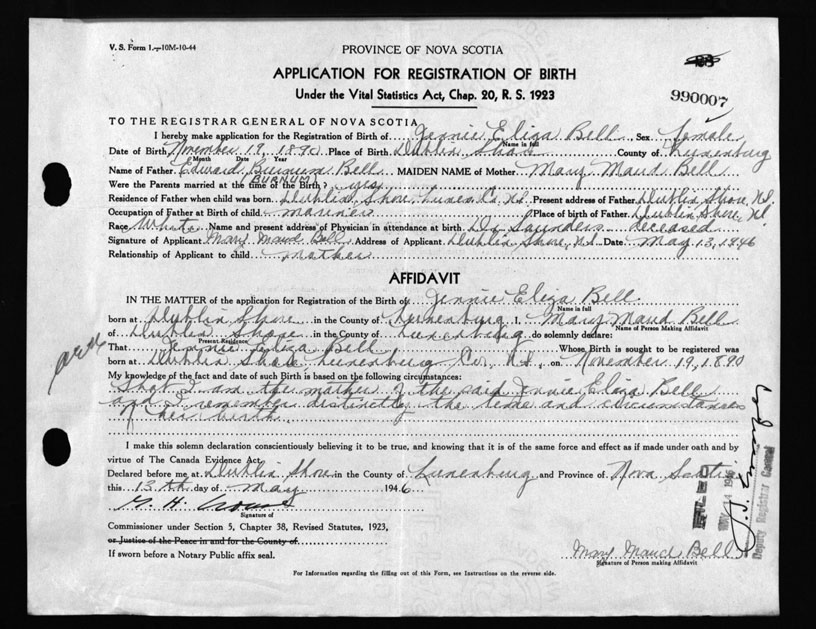 V. S. Form 1.—10M-10-44
PROVINCE OF NOVA SCOTIA
APPLICATION FOR REGISTRATION OF BIRTH
Under the Vital Statistics Act, Chap. 20, R. S. 1923
990007
TO THE REGISTRAR GENERAL OF NOVA SCOTIA
I hereby make application for the Registration of Birth of Jennie Eliza Bell Sex female
Name in full
Date of Birth November 19, 1890 Place of Birth Dublin Shore County of Lunenburg
Month Date Year
Name of Father Edward Burnum Bell MAIDEN NAME of Mother Mary Maud Bell
(BURNUM)
Were the Parents married at the time of the Birth? yes
Residence of Father when child was born Dublin Shore, Lunen. Co. N.S. Present address of Father Dublin Shore, N.S.
Occupation of Father at Birth of child mariner Place of birth of Father Dublin Shore, N.S.
Race White Name and present address of Physician in attendance at birth Dr Saunders deceased
Signature of Applicant Mary Maud Bell Address of Applicant Dublin Shore, N.S. Date May 13, 1946
Relationship of Applicant to child mother
AFFIDAVIT
IN THE MATTER of the application for Registration of the Birth of Jennie Eliza Bell
Name in full
born at Dublin Shore in the County of Lunenburg I, Mary Maud Bell
Name of Person Making Affidavit
of Dublin Shore in the County of Lunenburg do solemnly declare:
Present Residence
That Jennie Eliza Bell Whose Birth is sought to be registered was
born at Dublin Shore Lunenburg Co., N.S., on November 19, 1890
My knowledge of the fact and date of such Birth is based on the following circumstances:
That I am the mother of the said Jennie Eliza Bell
and I remember distinctly the time and circumstances
of her birth.
I make this solemn declaration conscientiously believing it to be true, and knowing that it is of the same force and effect as if made under oath and by
virtue of The Canada Evidence Act.
Declared before me at Dublin Shore in the County of Lunenburg and Province of Nova Scotia
this 13th day of May 1946
Signature of
Commissioner under Section 5, Chapter 38, Revised Statutes, 1923,
or Justice of the Peace in and for the County of
If sworn before a Notary Public affix seal.
Mary Maud Bell
Signature of Person making Affidavit
For Information regarding the filling out of this Form, see Instructions on the reverse side.
FILED
Deputy Registrar General